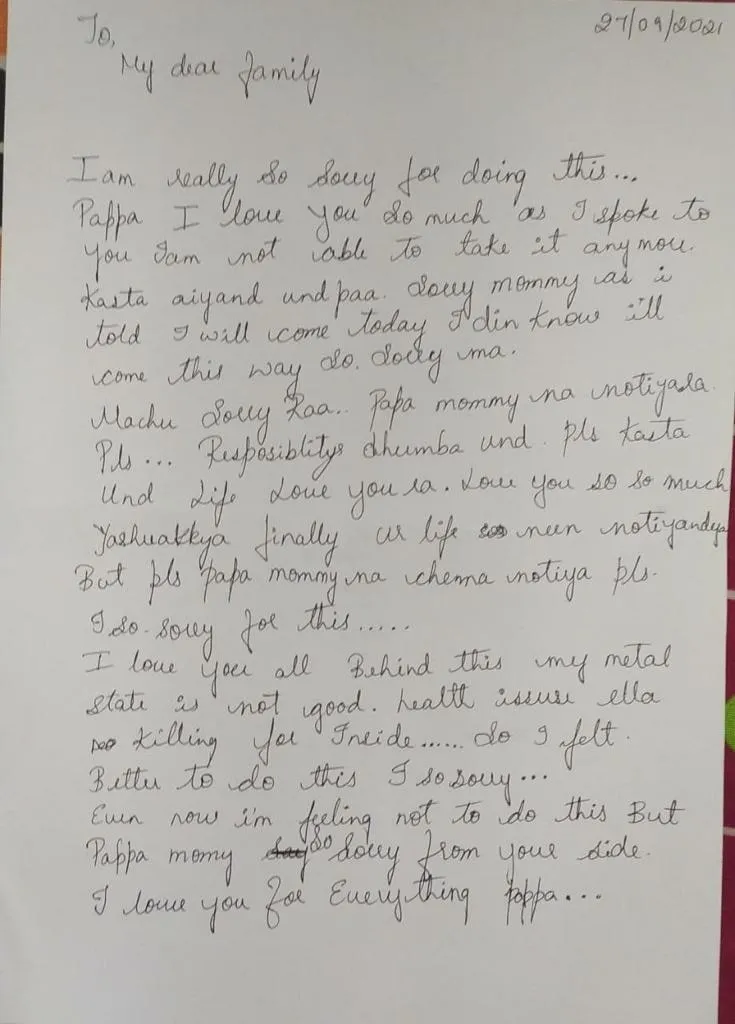 27/09/2021
To,
My dear family
I am really so sorry for doing this...
Pappa I love you so much as I spoke to
you Iam not able to take it anymore.
Kasta aiyand und paa. Sorry mommy as i
told I will come today I din know ill
come this way so. Sorry ma.
Machu sorry Raa.. Papa mommy na notiyara.
Pls ... Resposiblitys dhumba und. pls Kasta
und life Love you ra. Love you so so much
Yashuakkya finally ur life neen notiyandya
But pls papa mommy na chenna notiya pls.
I so. sorry for this.....
I love you all Behind this my metal
state is not good. health issuse ella
killing for Inside...... So I felt.
Better to do this I so sorry...
Even now i'm feeling not to do this But
Pappa momy so sorry from your side.
I love you for Everything pappa...